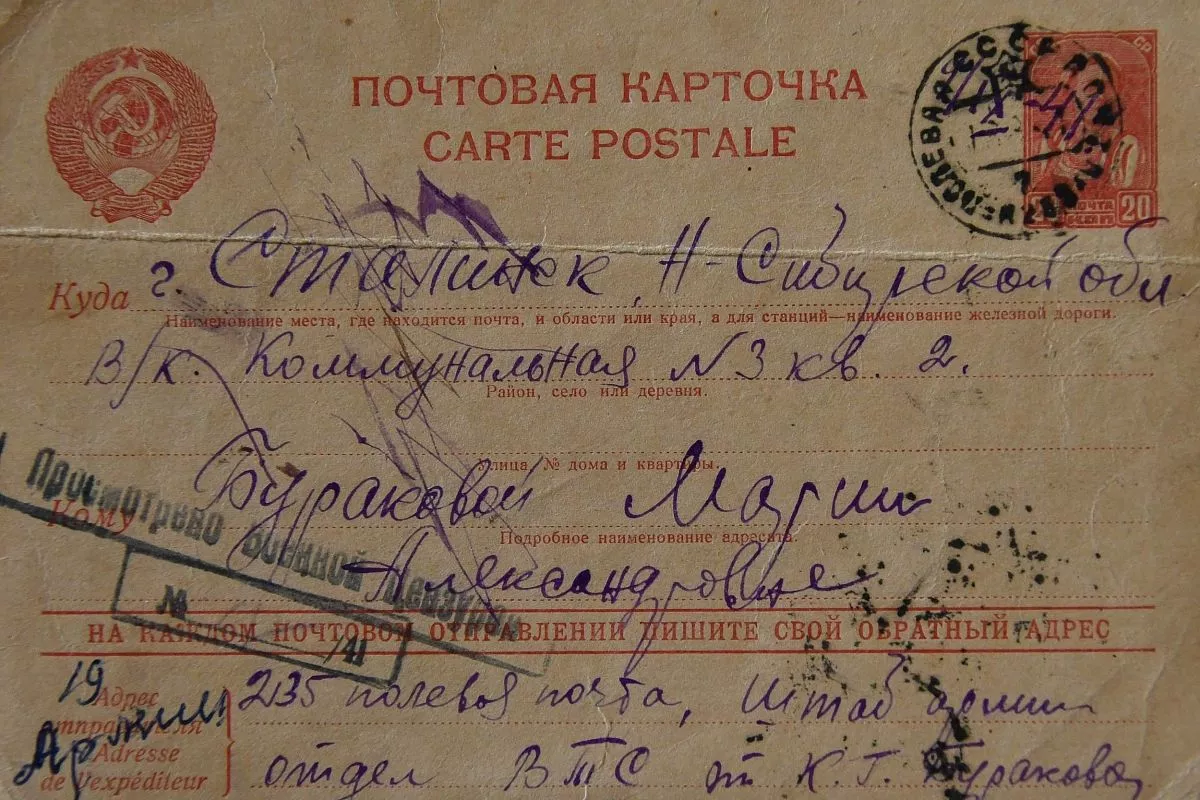 ПОЧТОВАЯ КАРТОЧКА
CARTE POSTALE
ПОЧТА
20
Куда г. Сталинск, Н-Сибирской обл
Наименование места, где находится почта, и области или края, а для станций—наименование железной дороги.
В/к. Коммунальная № 3 кв. 2.
Район, село или деревня.
Улица, № дома и квартиры.
Кому Бураковой Марии
Подробное наименование адресата.
Александровне
Просмотрено Военной Цензурой
№
/41
НА КАЖДОМ ПОЧТОВОМ ОТПРАВЛЕНИИ ПИШИТЕ СВОЙ ОБРАТНЫЙ АДРЕС
19 Армии
Адрес
отправителя
Adresse
de l'expéditeur
235 полевая почта, Штаб армии
отдел ВТС от К. Г. Буракова